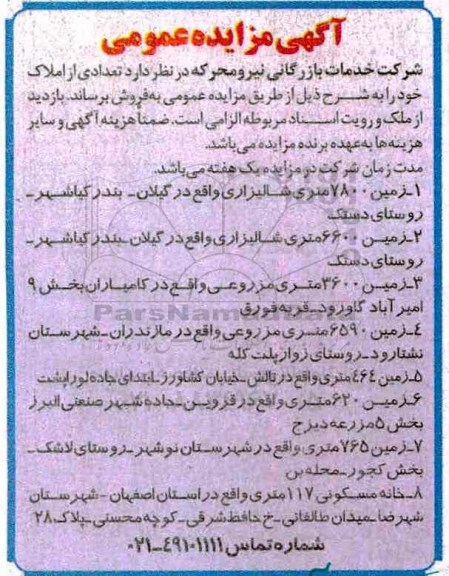 آگهی مزایده عمومی
شرکت خدمات بازرگانی نیرو محرکه در نظر دارد تعدادی از املاک
خود را به شرح ذیل از طریق مزایده عمومی به فروش برساند. بازدید
از ملک و رویت اسناد مربوطه الزامی است. ضمناً هزینه آگهی و سایر
هزینه‌ها به عهده برنده مزایده می‌باشد.
مدت زمان شرکت در مزایده یک هفته می‌باشد.
۱ـ زمین ۷۸۰۰ متری شالیزاری واقع در گیلان ـ بندر کیاشهر ـ
روستای دستک
۲ـ زمین ۶۶۰۰ متری شالیزاری واقع در گیلان ـ بندر کیاشهر ـ
روستای دستک
۳ـ زمین ۳۶۰۰۰ متری مزروعی واقع در کامیاران بخش ۹
امیر آباد گاورود ـ قریه فورق
۴ـ زمین ۶۵۹۰ متری مزروعی واقع در مازندران ـ شهرستان
نشتارود ـ روستای زوار پلت کله
۵ـ زمین ۴۶۴ متری واقع در تالش ـ خیابان کشاورز ـ ابتدای جاده لورابشت
۶ـ زمین ۶۲۰ متری واقع در قزوین ـ جاده شهر صنعتی البرز
بخش ۵ مزرعه دیزج
۷ـ زمین ۷۶۵ متری واقع در شهرستان نوشهر ـ روستای لاشک ـ
بخش کجور ـ محله بن
۸ـ خانه مسکونی ۱۱۷ متری واقع در استان اصفهان - شهرستان
شهرضا ـ میدان طالقانی ـ خ حافظ شرقی ـ کوچه محسنی ـ پلاک ۲۸
شماره تماس ۴۹۱۰۱۱۱۱-۰۲۱